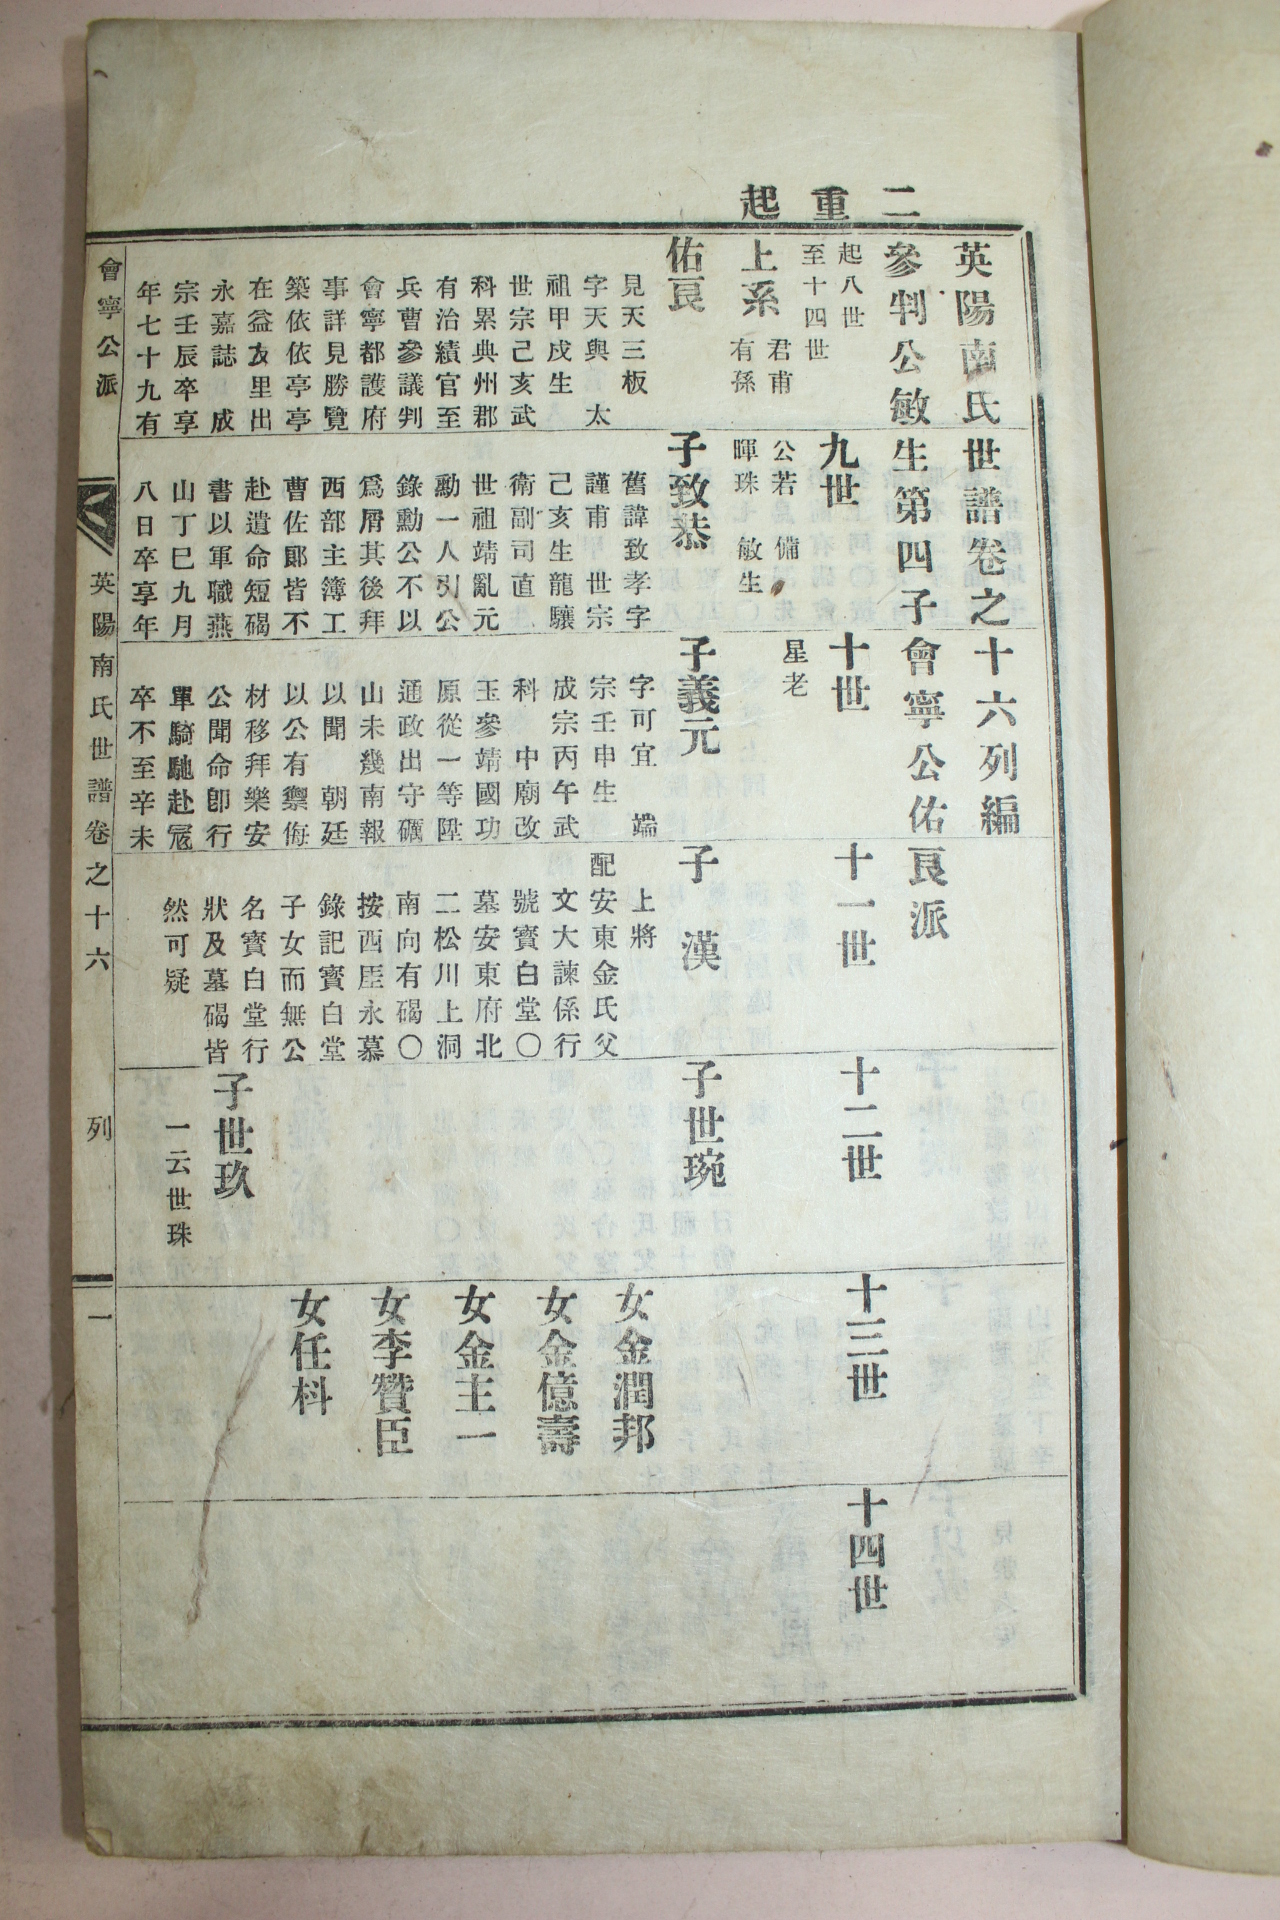 二重起
英陽南氏世譜卷之十六列編
參判公敏生第四子會寧公佑良派
起八世
至十四世
上系
君甫
有孫
公若
暉珠
備
敏生
星老
九世
十世
十一世
十二世
十三世
十四世
佑良
見天三板
字天與 太
祖甲戌生
世宗己亥武
科累典州郡
有治績官至
兵曹參議判
會寧都護府
事詳見勝覽
築依依亭亭
在益友里出
永嘉誌 成
宗壬辰卒享
年七十九有
子致恭
舊諱致孝字
謹甫 世宗
己亥生龍驤
衛副司直
世祖靖亂元
勳一人引公
錄勳公不以
爲屑其後拜
西部主簿工
曹佐郞皆不
赴遺命短碣
書以軍職燕
山丁巳九月
八日卒享年
子義元
字可宜 端
宗壬申生
成宗丙午武
科 中廟改
玉參靖國功
原從一等陞
通政出守礪
山未幾南報
以聞 朝廷
以公有禦侮
材移拜樂安
公聞命卽行
單騎馳赴寇
卒不至辛未
子 漢
上將
配安東金氏父
文大諫係行
號寶白堂〇
墓安東府北
二松川上洞
南向有碣〇
按西厓永慕
錄記寶白堂
子女而無公
名寶白堂行
狀及墓碣皆
然可疑
子世琬
子世玖
一云世珠
女金潤邦
女金億壽
女金主一
女李贊臣
女任枓
會寧公派
英陽南氏世譜卷之十六
列
一